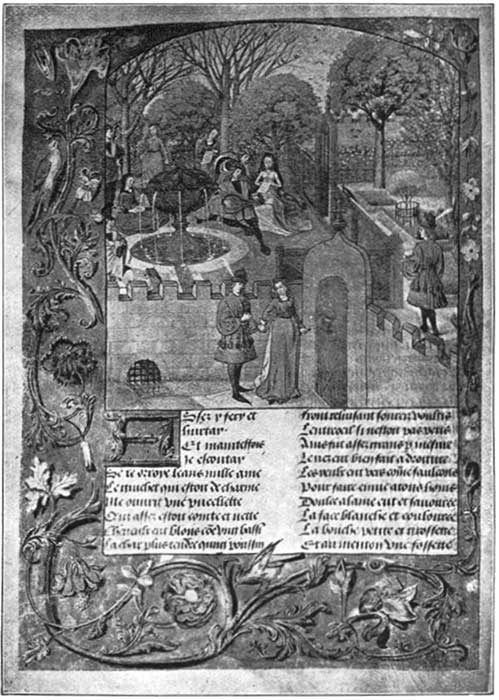 Assez y fery et
hurtay
Et maintesfois
je escoutay
Se je orroye leans mille ame
Le guichet qui estoit de charme
Me ouvrit une pucellette
Qui assez estoit cointe et nette
Cheveulx eut blons côe ung bassī
La char plus tendre qung poussin
Front reluisant sourcis voultis
Lentreoeil si nestoit pas petis
Ains fut assez grans p mesure
Le nez eut bien fait a droiture
Les yeulx eut vers côme faulcons
Pour faire envie a tous homs
Doulce alaine eut et savouree
La face blanche et coulouree
La bouche petite et grossette
Et au menton une fossette